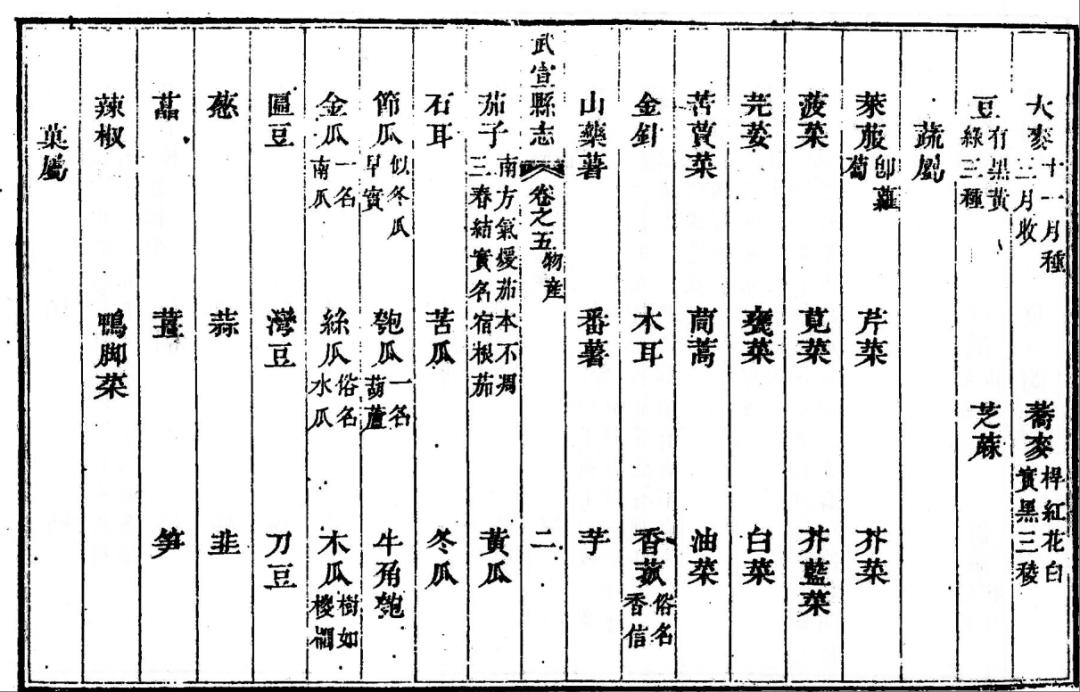 大麥十一月種三月收 蕎麥桿紅花白實黑三稜
豆有黑黃綠三種 芝蔴
蔬屬
萊菔卽蘿蔔 芹菜 芥菜
菠菜 莧菜 芥藍菜
芫荽 甕菜 白菜
苦蕒菜 茼蒿 油菜
金針 木耳 香菰俗名香信
山藥薯 番薯 芋
武宣縣志 卷之五物產 二
茄子南方氣煖茄本不凋三春結實名宿根茄 黃瓜
石耳 苦瓜 冬瓜
節瓜似冬瓜早實 匏瓜一名葫蘆 牛角匏
金瓜一名南瓜 絲瓜俗名水瓜 木瓜樹如椶櫚
匾豆 灣豆 刀豆
葱 蒜 韭
藠 薑 笋
辣椒 鴨脚菜
菓屬